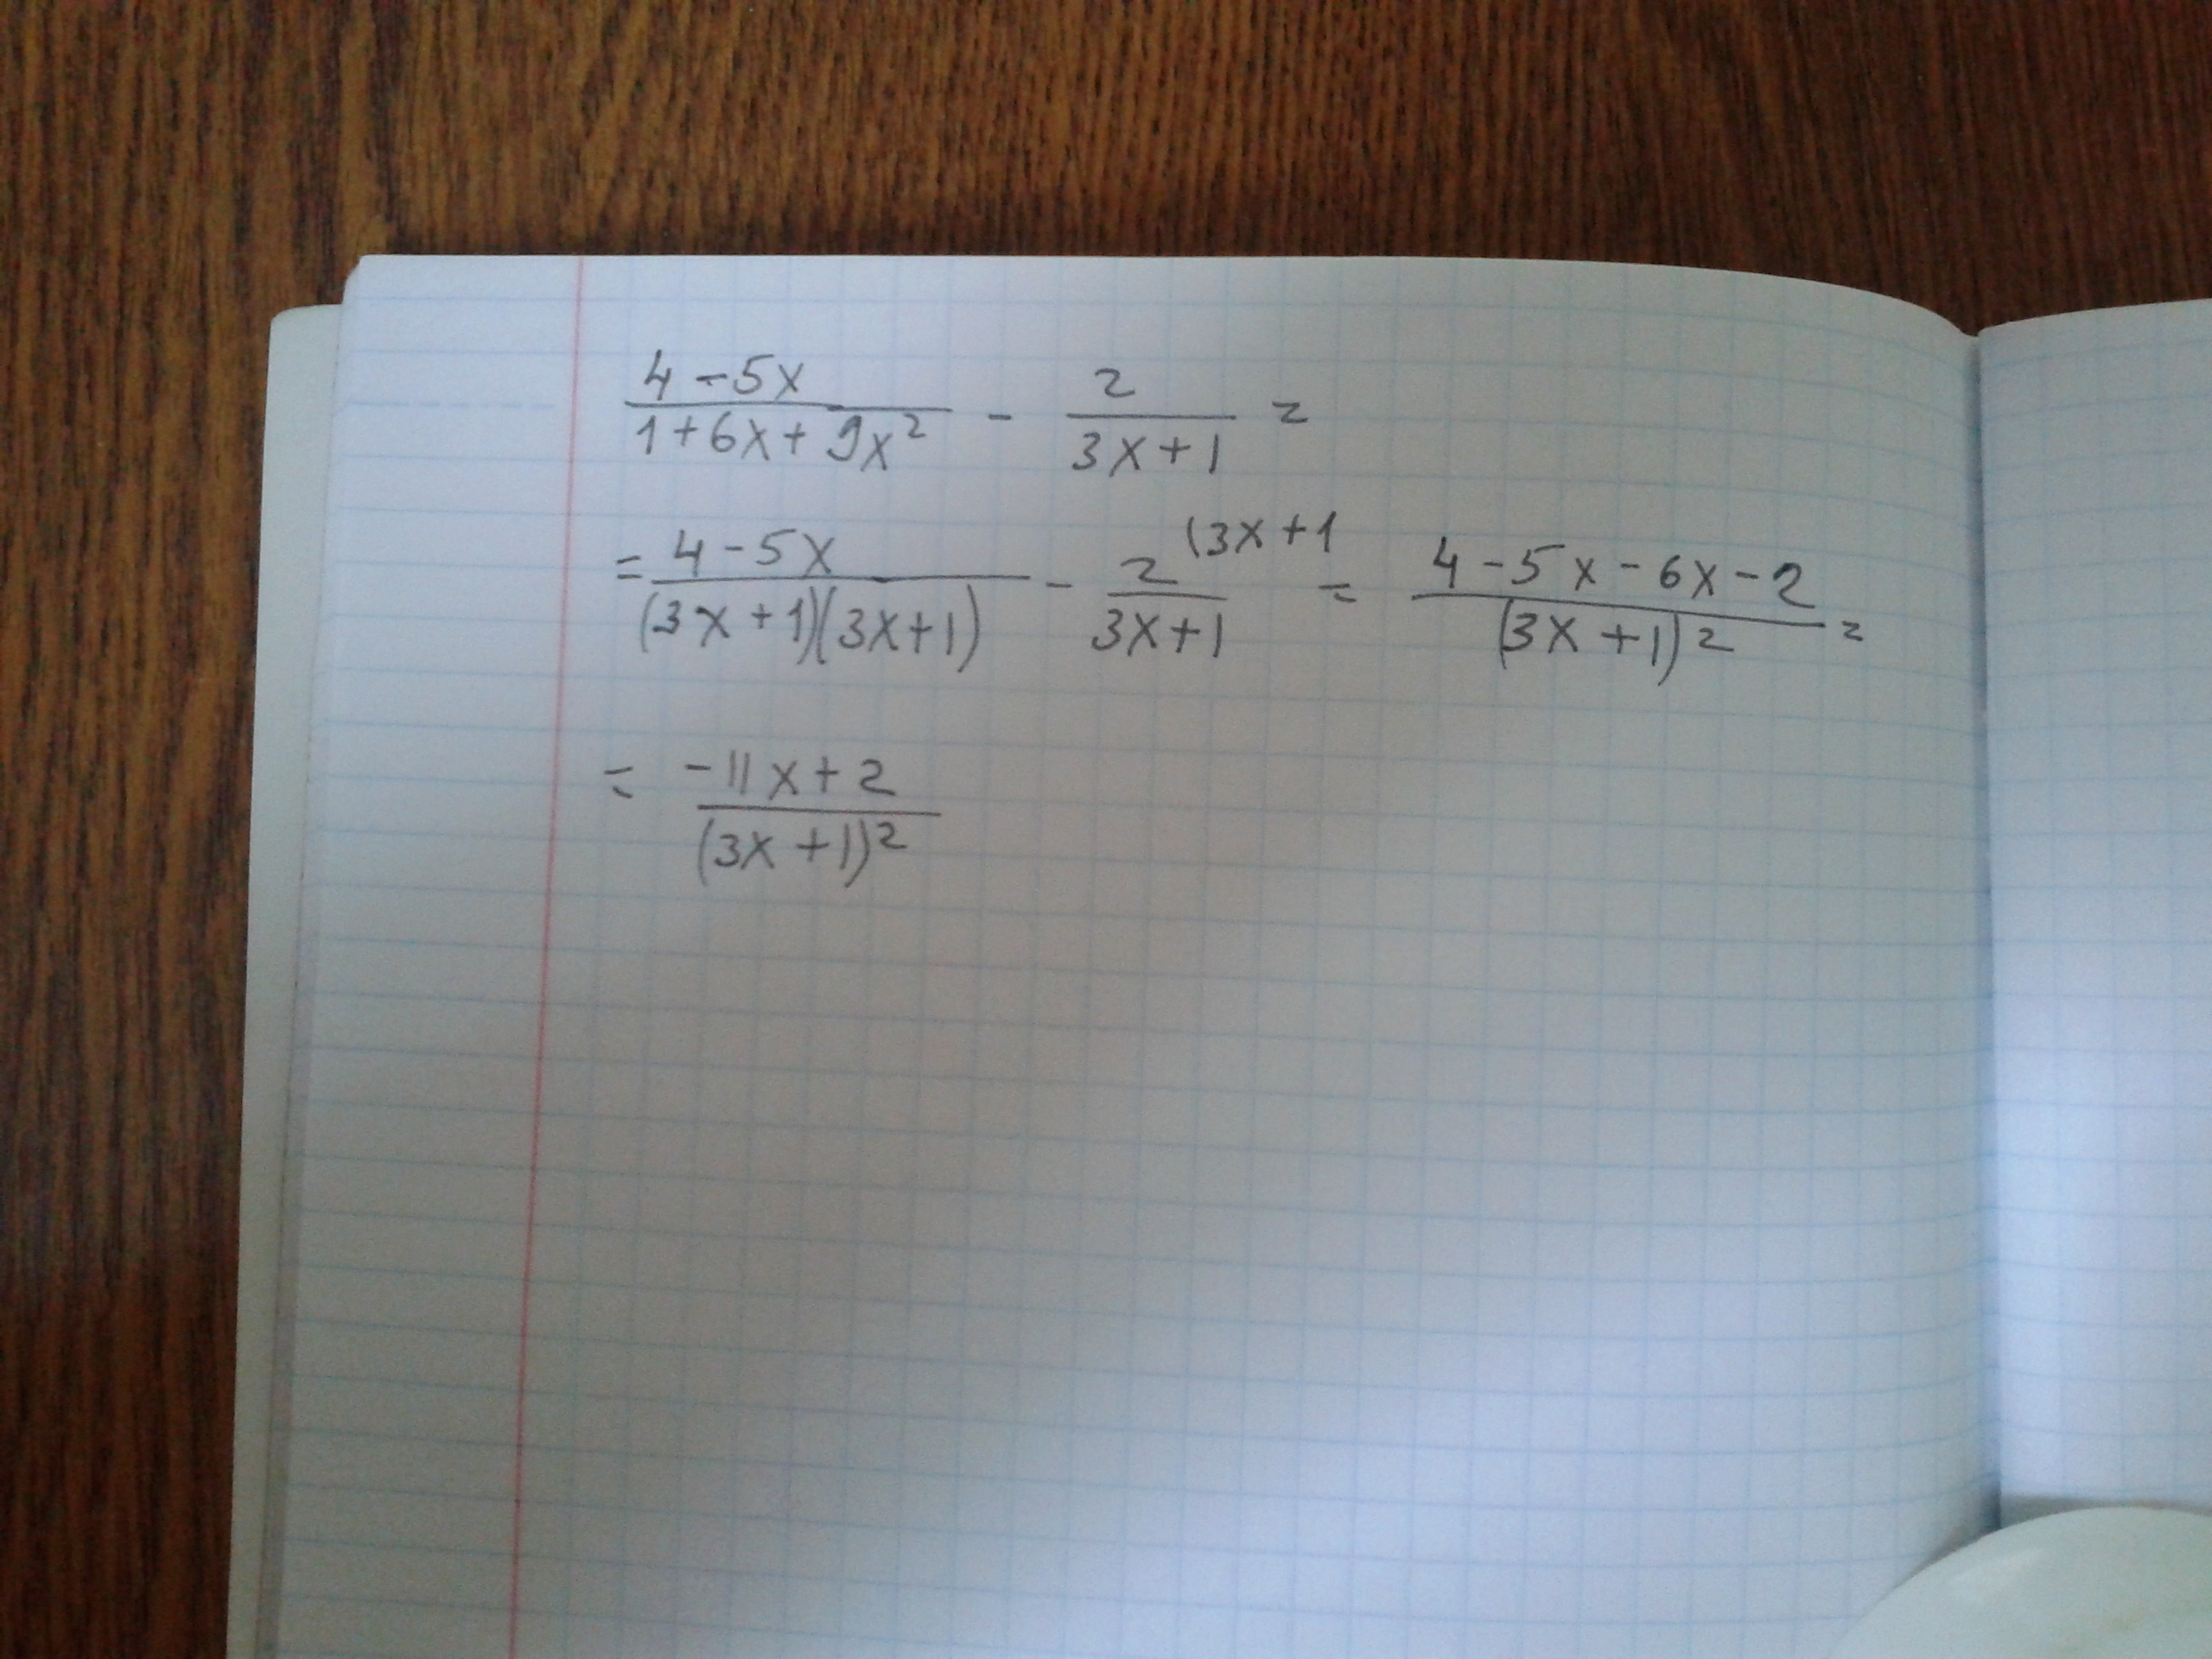 (4-5x)/(1+6x+9x²) - 2/(3x+1) =
= (4-5x)/((3x+1)(3x+1)) - 2/(3x+1) (3x+1 = (4-5x-6x-2)/(3x+1)² =
= (-11x+2)/(3x+1)²